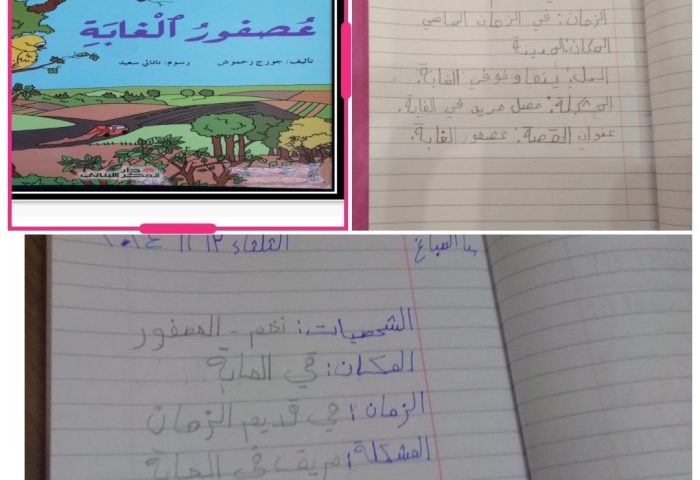 عُصفورُ ٱلْغابَةِ
تأليف: جورج رحموش رسوم: ناتالي سعيد
دار
الفكر اللبناني
الزمان: في الزمان الماضي
المكان: المدينة
الحل: يتعاونو في الغابة.
المشكلة: حصل حريق في الغابة.
عنوان القصة: عصفور الغابة.
الثلاثاء
الصباغ
الشخصيات: نعم - العصفور
المكان: في الغابة
الزمان: في قديم الزمان
المشكلة: حريق في الغابة